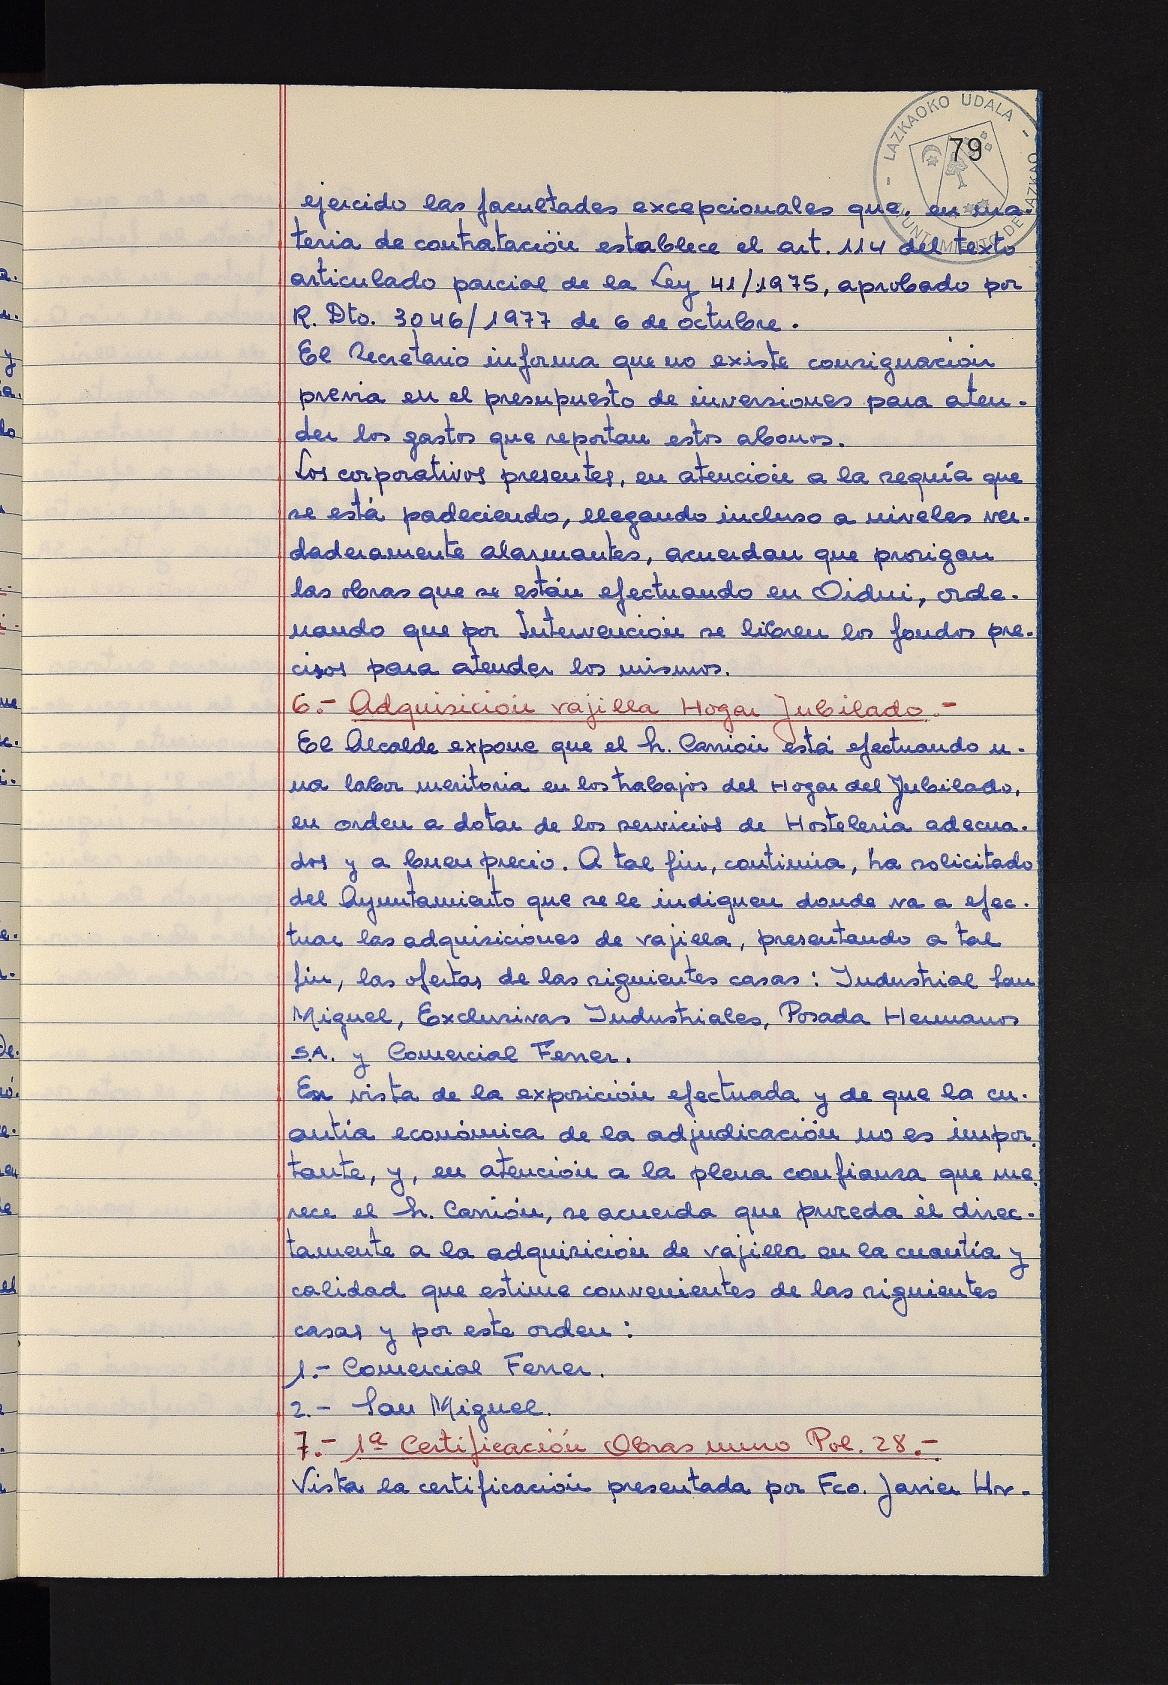 LAZKAOKO UDALA - AYUNTAMIENTO DE LAZKAO -
79
ejercido las facultades excepcionales que, en ma-
teria de contratación establece el art. 114 del texto
articulado parcial de la Ley 41/1975, aprobado por
R. Dto. 3046/1977 de 6 de octubre.
El Secretario informa que no existe consignación
previa en el presupuesto de inversiones para aten-
der los gastos que reportan estos abonos.
Los corporativos presentes, en atención a la sequía que
se está padeciendo, llegando incluso a niveles ver-
daderamente alarmantes, acuerdan que prosigan
las obras que se están efectuando en Oidui, orde-
nando que por Intervención se libren los fondos pre-
cisos para atender los mismos.
6.- Adquisición vajilla Hogar Jubilado.-
El Alcalde expone que el Sr. Carrión está efectuando u-
na labor meritoria en los trabajos del Hogar del Jubilado,
en orden a dotar de los servicios de Hostelería adecua-
dos y a buen precio. A tal fin, continúa, ha solicitado
del Ayuntamiento que se le indiquen donde va a efec-
tuar las adquisiciones de vajilla, presentando a tal
fin, las ofertas de las siguientes casas: Industrial San
Miguel, Exclusivas Industriales, Posada Hermanos
S.A. y Comercial Ferrer.
En vista de la exposición efectuada y de que la cu-
antía económica de la adjudicación no es impor-
tante, y, en atención a la plena confianza que me-
rece el Sr. Carrión, se acuerda que proceda él direc-
tamente a la adquisición de vajilla en la cuantía y
calidad que estime convenientes de las siguientes
casas y por este orden:
1.- Comercial Ferrer.
2.- San Miguel.
7.- 1ª Certificación Obras muro Pol. 28.-
Vista la certificación presentada por Fco. Javier Ur-